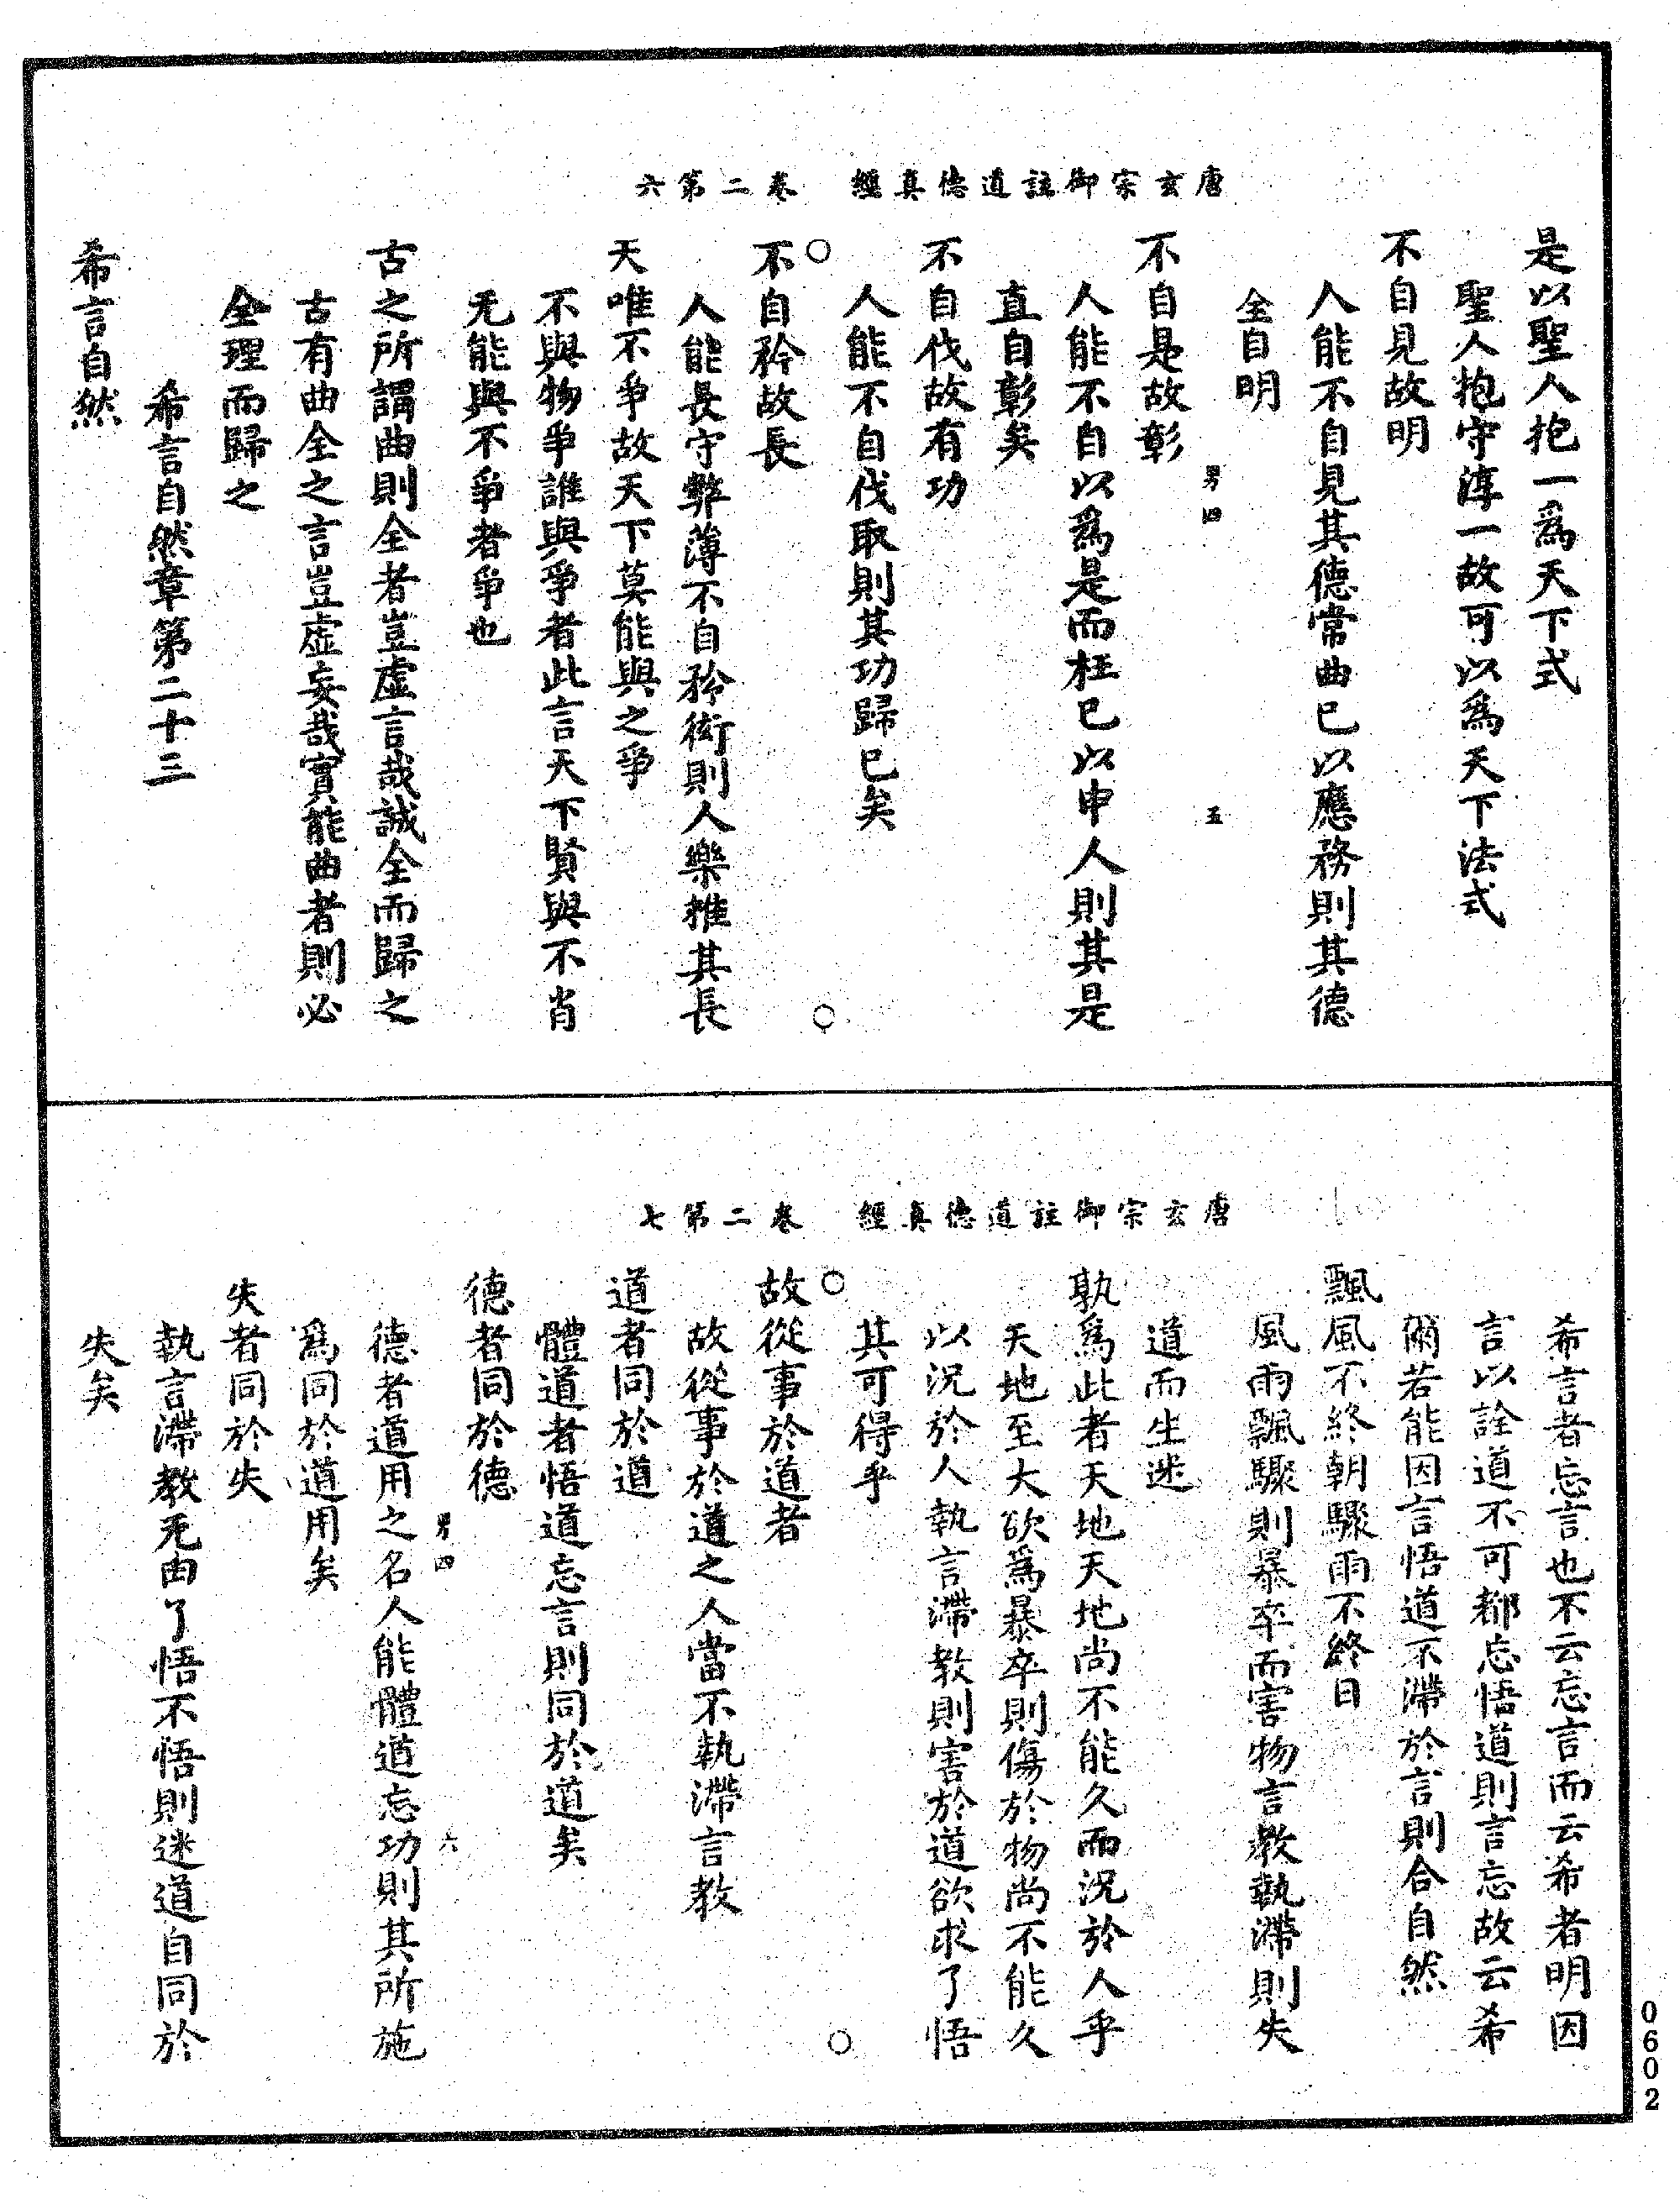 唐玄宗御註道德真經　卷二第六
是以聖人抱一爲天下式
聖人抱守淳一故可以爲天下法式
不自見故明
人能不自見其德常曲已以應務則其德
全自明
男四　五
不自是故彰
人能不自以爲是而枉已以申人則其是
直自彰矣
不自伐故有功
人能不自伐取則其功歸已矣
○　○
不自矜故長
人能長守弊薄不自矜衒則人樂推其長
天唯不爭故天下莫能與之爭
不與物爭誰與爭者此言天下賢與不肖
无能與不爭者爭也
古之所謂曲則全者豈虛言哉誠全而歸之
古有曲全之言豈虛妄哉實能曲者則必
全理而歸之
希言自然章第二十三
希言自然
唐玄宗御註道德真經　卷二第七
希言者忘言也不云忘言而云希者明因
言以詮道不可都忘悟道則言忘故云希
爾若能因言悟道不滯於言則合自然
飄風不終朝驟雨不終日
風雨飄驟則暴卒而害物言教執滯則失
道而生迷
孰爲此者天地天地尚不能久而況於人乎
天地至大欲爲暴卒則傷於物尚不能久
以況於人執言滯教則害於道欲求了悟
其可得乎
○　○
故從事於道者
故從事於道之人當不執滯言教
道者同於道
體道者悟道忘言則同於道矣
德者同於德
男四　六
德者道用之名人能體道忘功則其所施
爲同於道用矣
失者同於失
執言滯教无由了悟不悟則迷道自同於
失矣
0602